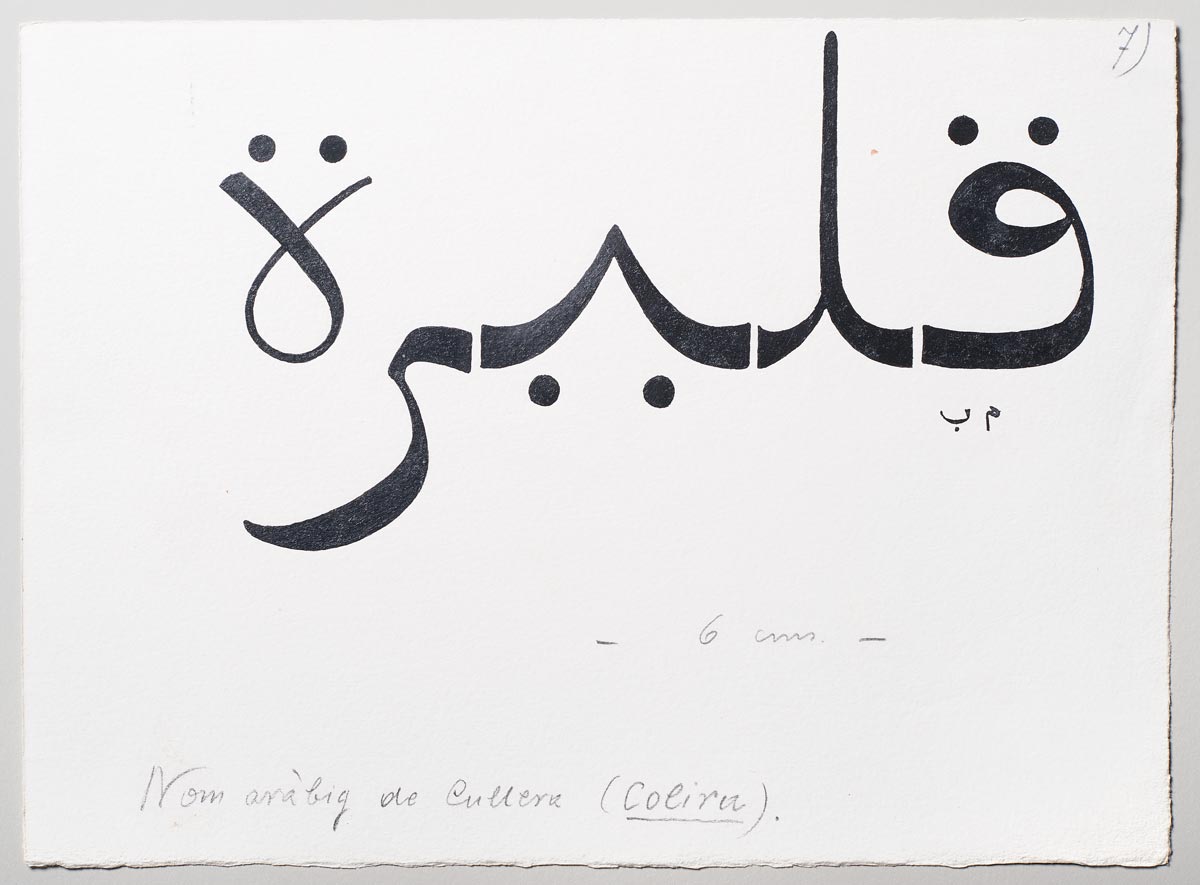 7)
قليرة
م ب
- 6 cms. -
Nom aràbig de Cullera (Colira).